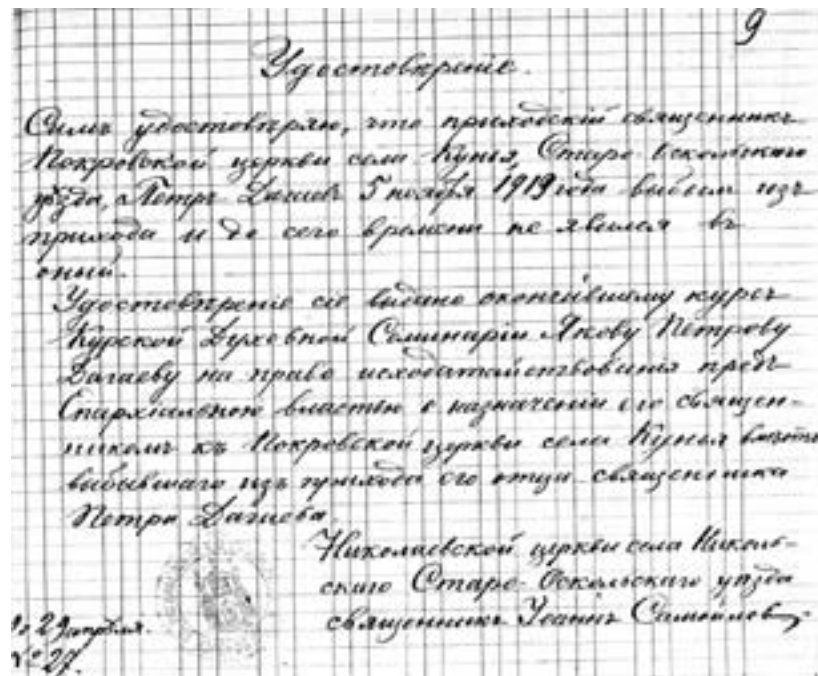 9
Удостовѣренie.
Симъ удостовѣряю, что приходскій священникъ
Покровской церкви села Кунья, Старо-Оскольскаго
уѣзда, Петръ 5 ноября 1919 года выбылъ изъ
прихода и до сего времени не явился въ
оный.
Удостовѣренie сie выдано окончившему курсъ
Курской Духовной Семинарiи Якову Петрову
Дагаеву на право исходатайствованiя предъ
Епархiальною властью о назначенiи его священ-
никомъ къ Покровской церкви села Кунья вмѣсто
выбывшаго изъ прихода его отца священника
Петра Дагаева.
Николаевской церкви села Николь-
скаго Старо-Оскольскаго уѣзда
священникъ Iоаннъ Самойловъ
29 апрѣля.
№ 27.